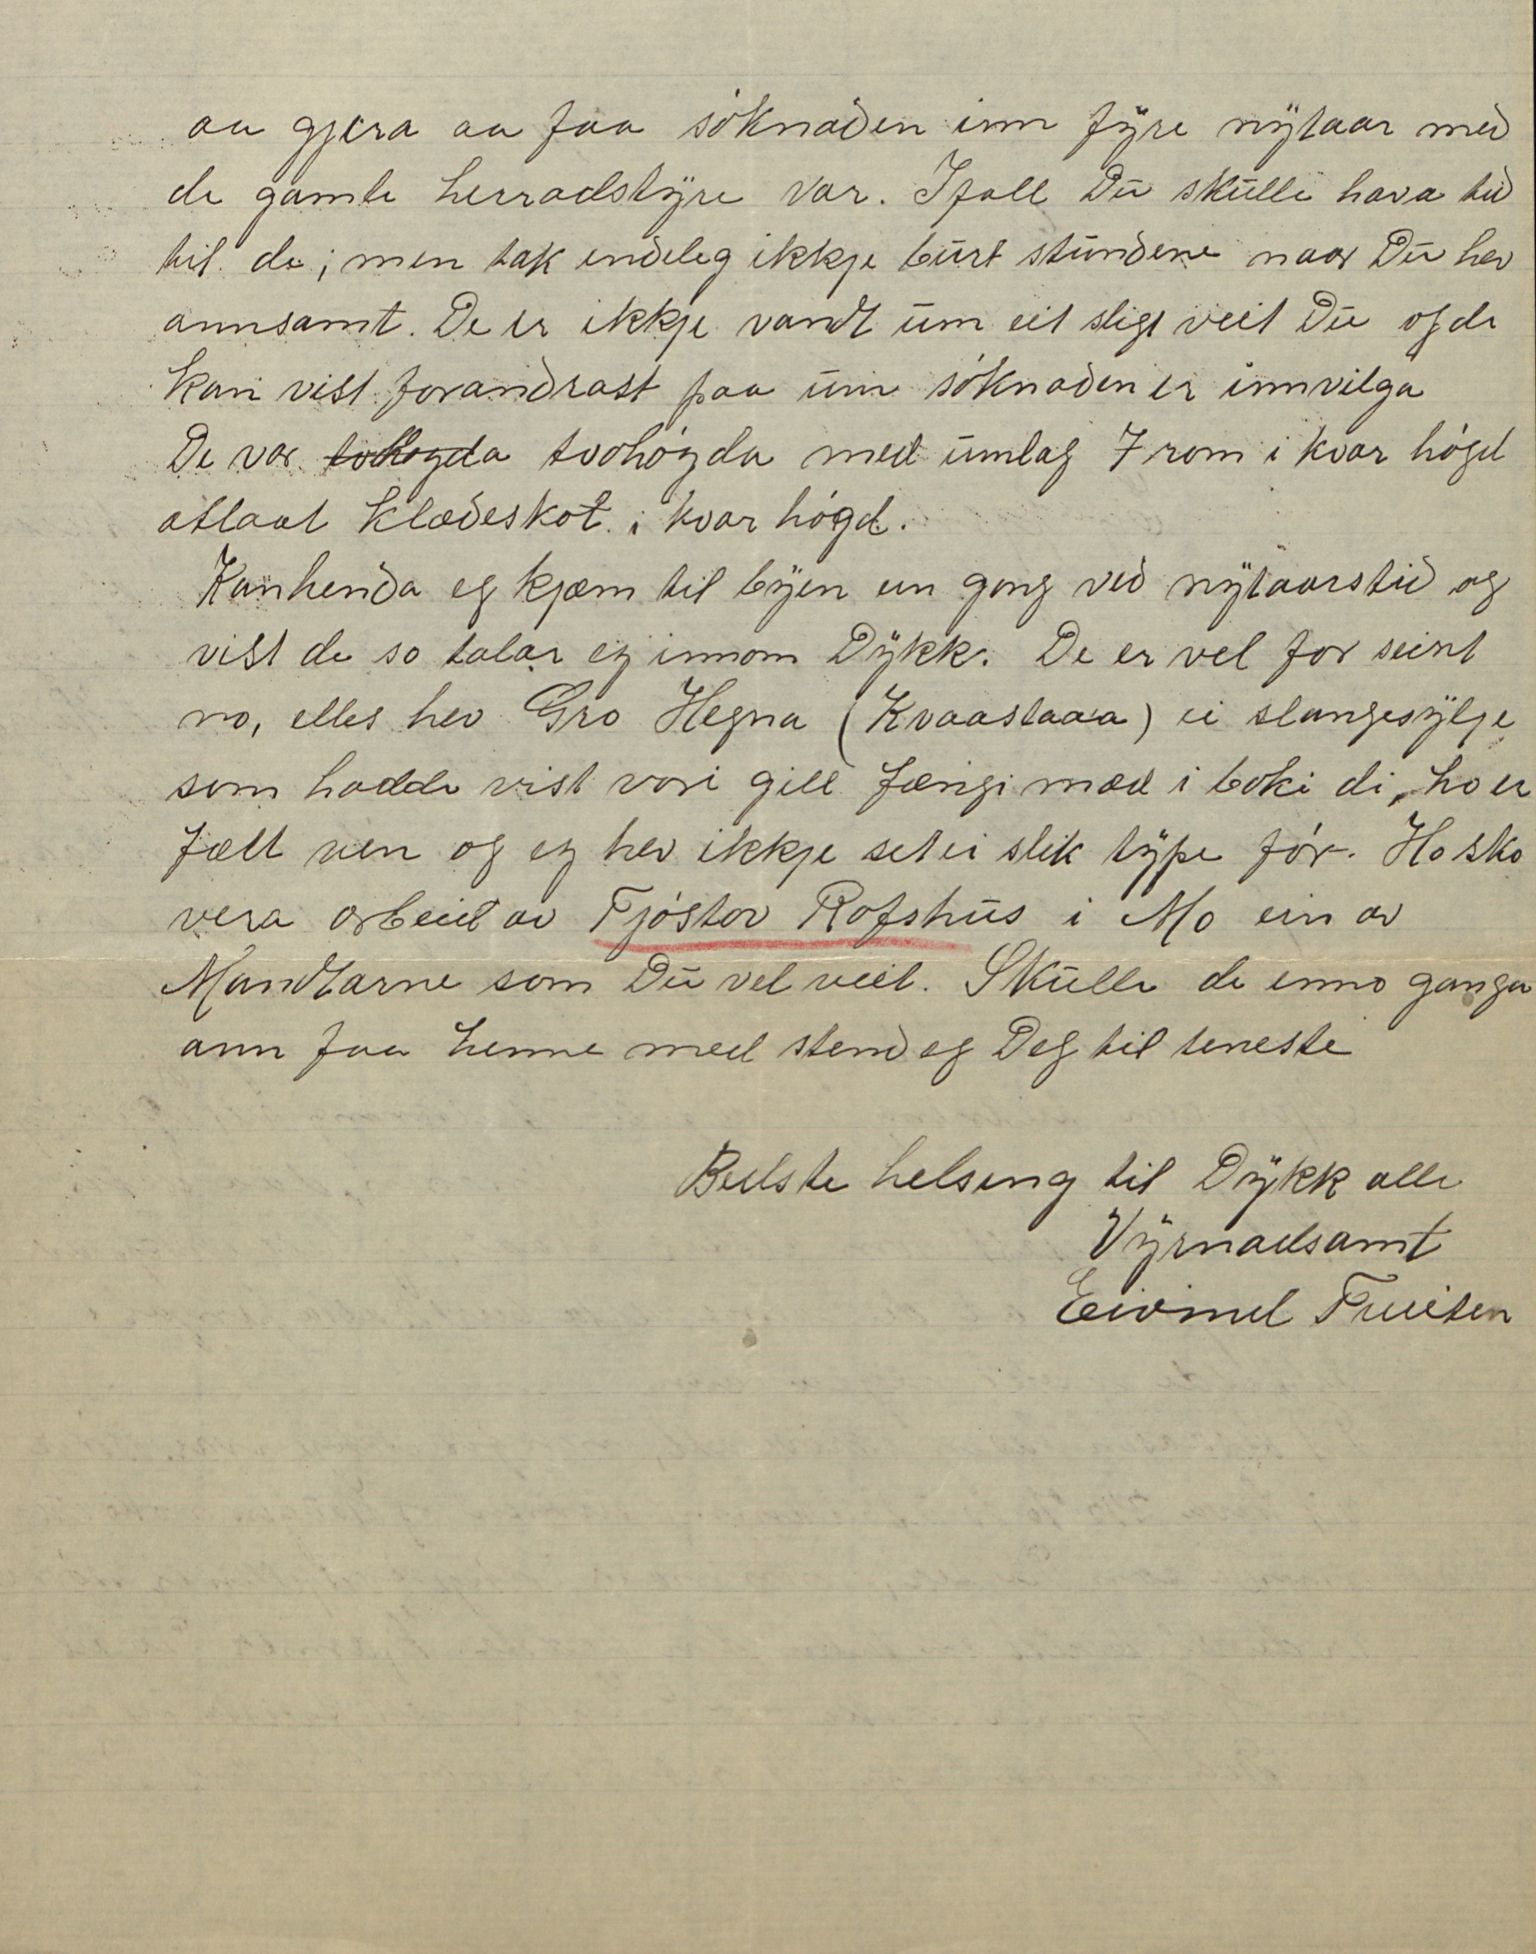 aa gjera aa faa söknaden inn fyre nytaar med
de gamle herradstyre var. Ifall Du skulle hava tid
til de; men tak endeleg ikkje burt stundene naar Du hev
annsamt. De er ikkje vandt um eit sligt veit Du og de
kan vist forandrast paa um söknaden er innvilga
De var tvohögda med umlag 7 rom i kvar högd
attaat klædeskot i kvar högd.
Kanhenda eg kjæm til byen en gong ved nytaarstid og
vist de so talar eg innom Dykk. De er vel for seint
no, elles hev Gro Hegna (Kvaastaaa) ei slangesylje
som hadde vist vori gill fængi med i boki di, ho er
fælt ven og eg hev ikkje set ei slik type för. Ho ska
vera arbeid av Fjöstov Rofshus i Mo ein av
Mandtarne som Du vel veit. Skulle de enno ganga
ann faa henne med stend eg Deg til teneste
Beelste helsing til Dykk alle
Vyrnadsamt
Eivind Tveiten